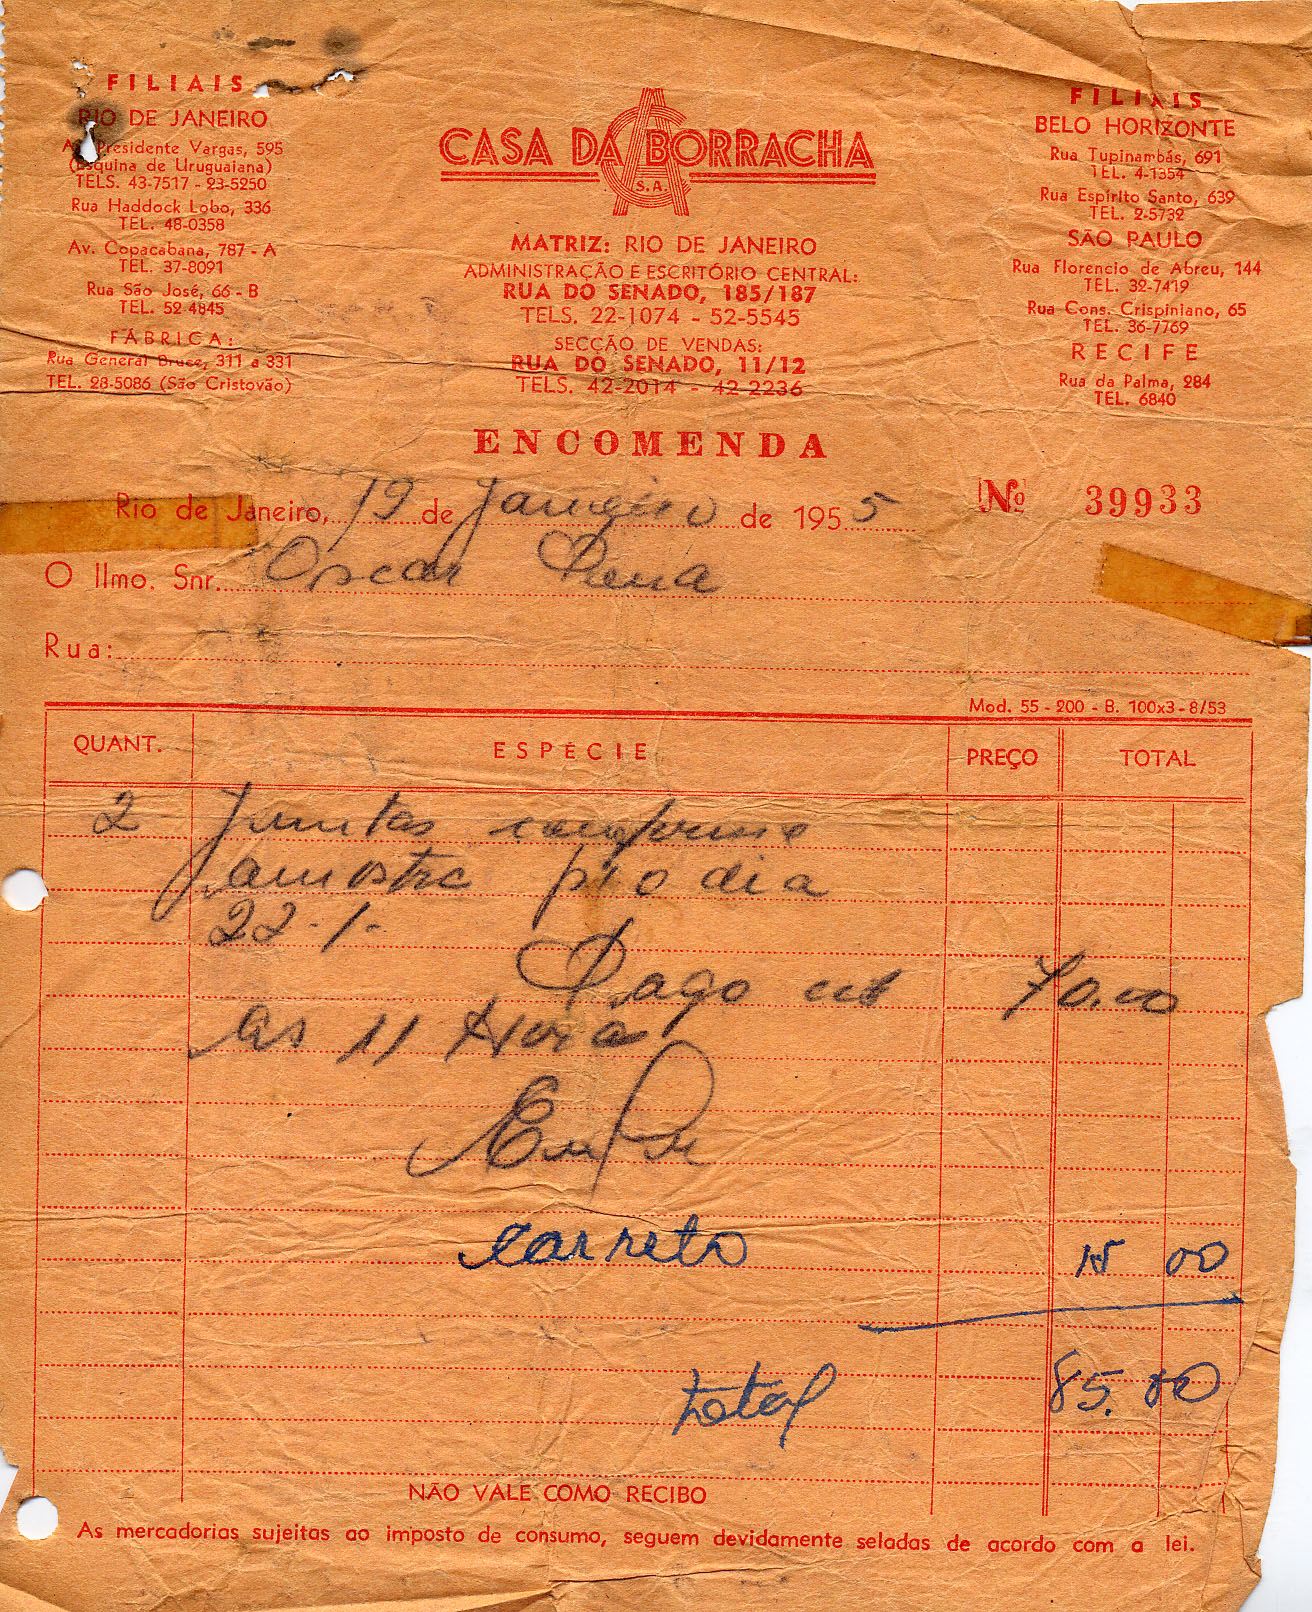 FILIAIS
RIO DE JANEIRO
Av. Presidente Vargas, 595
(Esquina de Uruguaiana)
TELS. 43-7517 - 23-5250
Rua Haddock Lobo, 336
TEL. 48-0358
Av. Copacabana, 787 - A
TEL. 37-8091
Rua São José, 66 - B
TEL. 52-4845
FÁBRICA:
Rua General Bruce, 311 a 331
TEL. 28-5086 (São Cristovão)
CASA DA BORRACHA
S.A.
MATRIZ: RIO DE JANEIRO
ADMINISTRAÇÃO E ESCRITÓRIO CENTRAL:
RUA DO SENADO, 185/187
TELS. 22-1074 - 52-5545
SECÇÃO DE VENDAS:
RUA DO SENADO, 11/12
TELS. 42-2014 - 42-2236
FILIAIS
BELO HORIZONTE
Rua Tupinambás, 691
TEL. 4-1354
Rua Espírito Santo, 639
TEL. 2-5732
SÃO PAULO
Rua Florencio de Abreu, 144
TEL. 32-7419
Rua Cons. Crispiniano, 65
TEL. 36-7769
RECIFE
Rua da Palma, 284
TEL. 6840
ENCOMENDA
Rio de Janeiro, 19 de Janeiro de 1955 Nº 39933
O Ilmo. Snr. Oscar Pena
Rua:
Mod. 55 - 200 - B. 100x3 - 8/53
QUANT. ESPÉCIE PREÇO TOTAL
2 Juntas conforme
amostra p/o dia
22-1-
Pago 70.00
as 11 Hora
carreto 15 00
total 85.00
NÃO VALE COMO RECIBO
As mercadorias sujeitas ao imposto de consumo, seguem devidamente seladas de acordo com a lei.